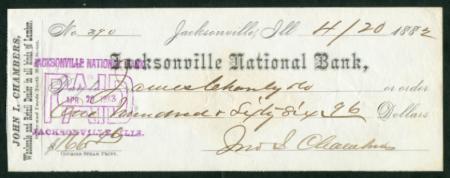 No. 390 Jacksonville, Ill 4/20 1882
Jacksonville National Bank,
James or order
One Hundred & Sixty Six 96 Dollars
$166
Jno. L. Chambers
JOHN L. CHAMBERS,
Wholesale and Retail Dealer in all kinds of Lumber,
JACKSONVILLE NATIONAL
PAID
APR 20
JACKSONVILLE ILLS.
COURIER STEAM PRINT.